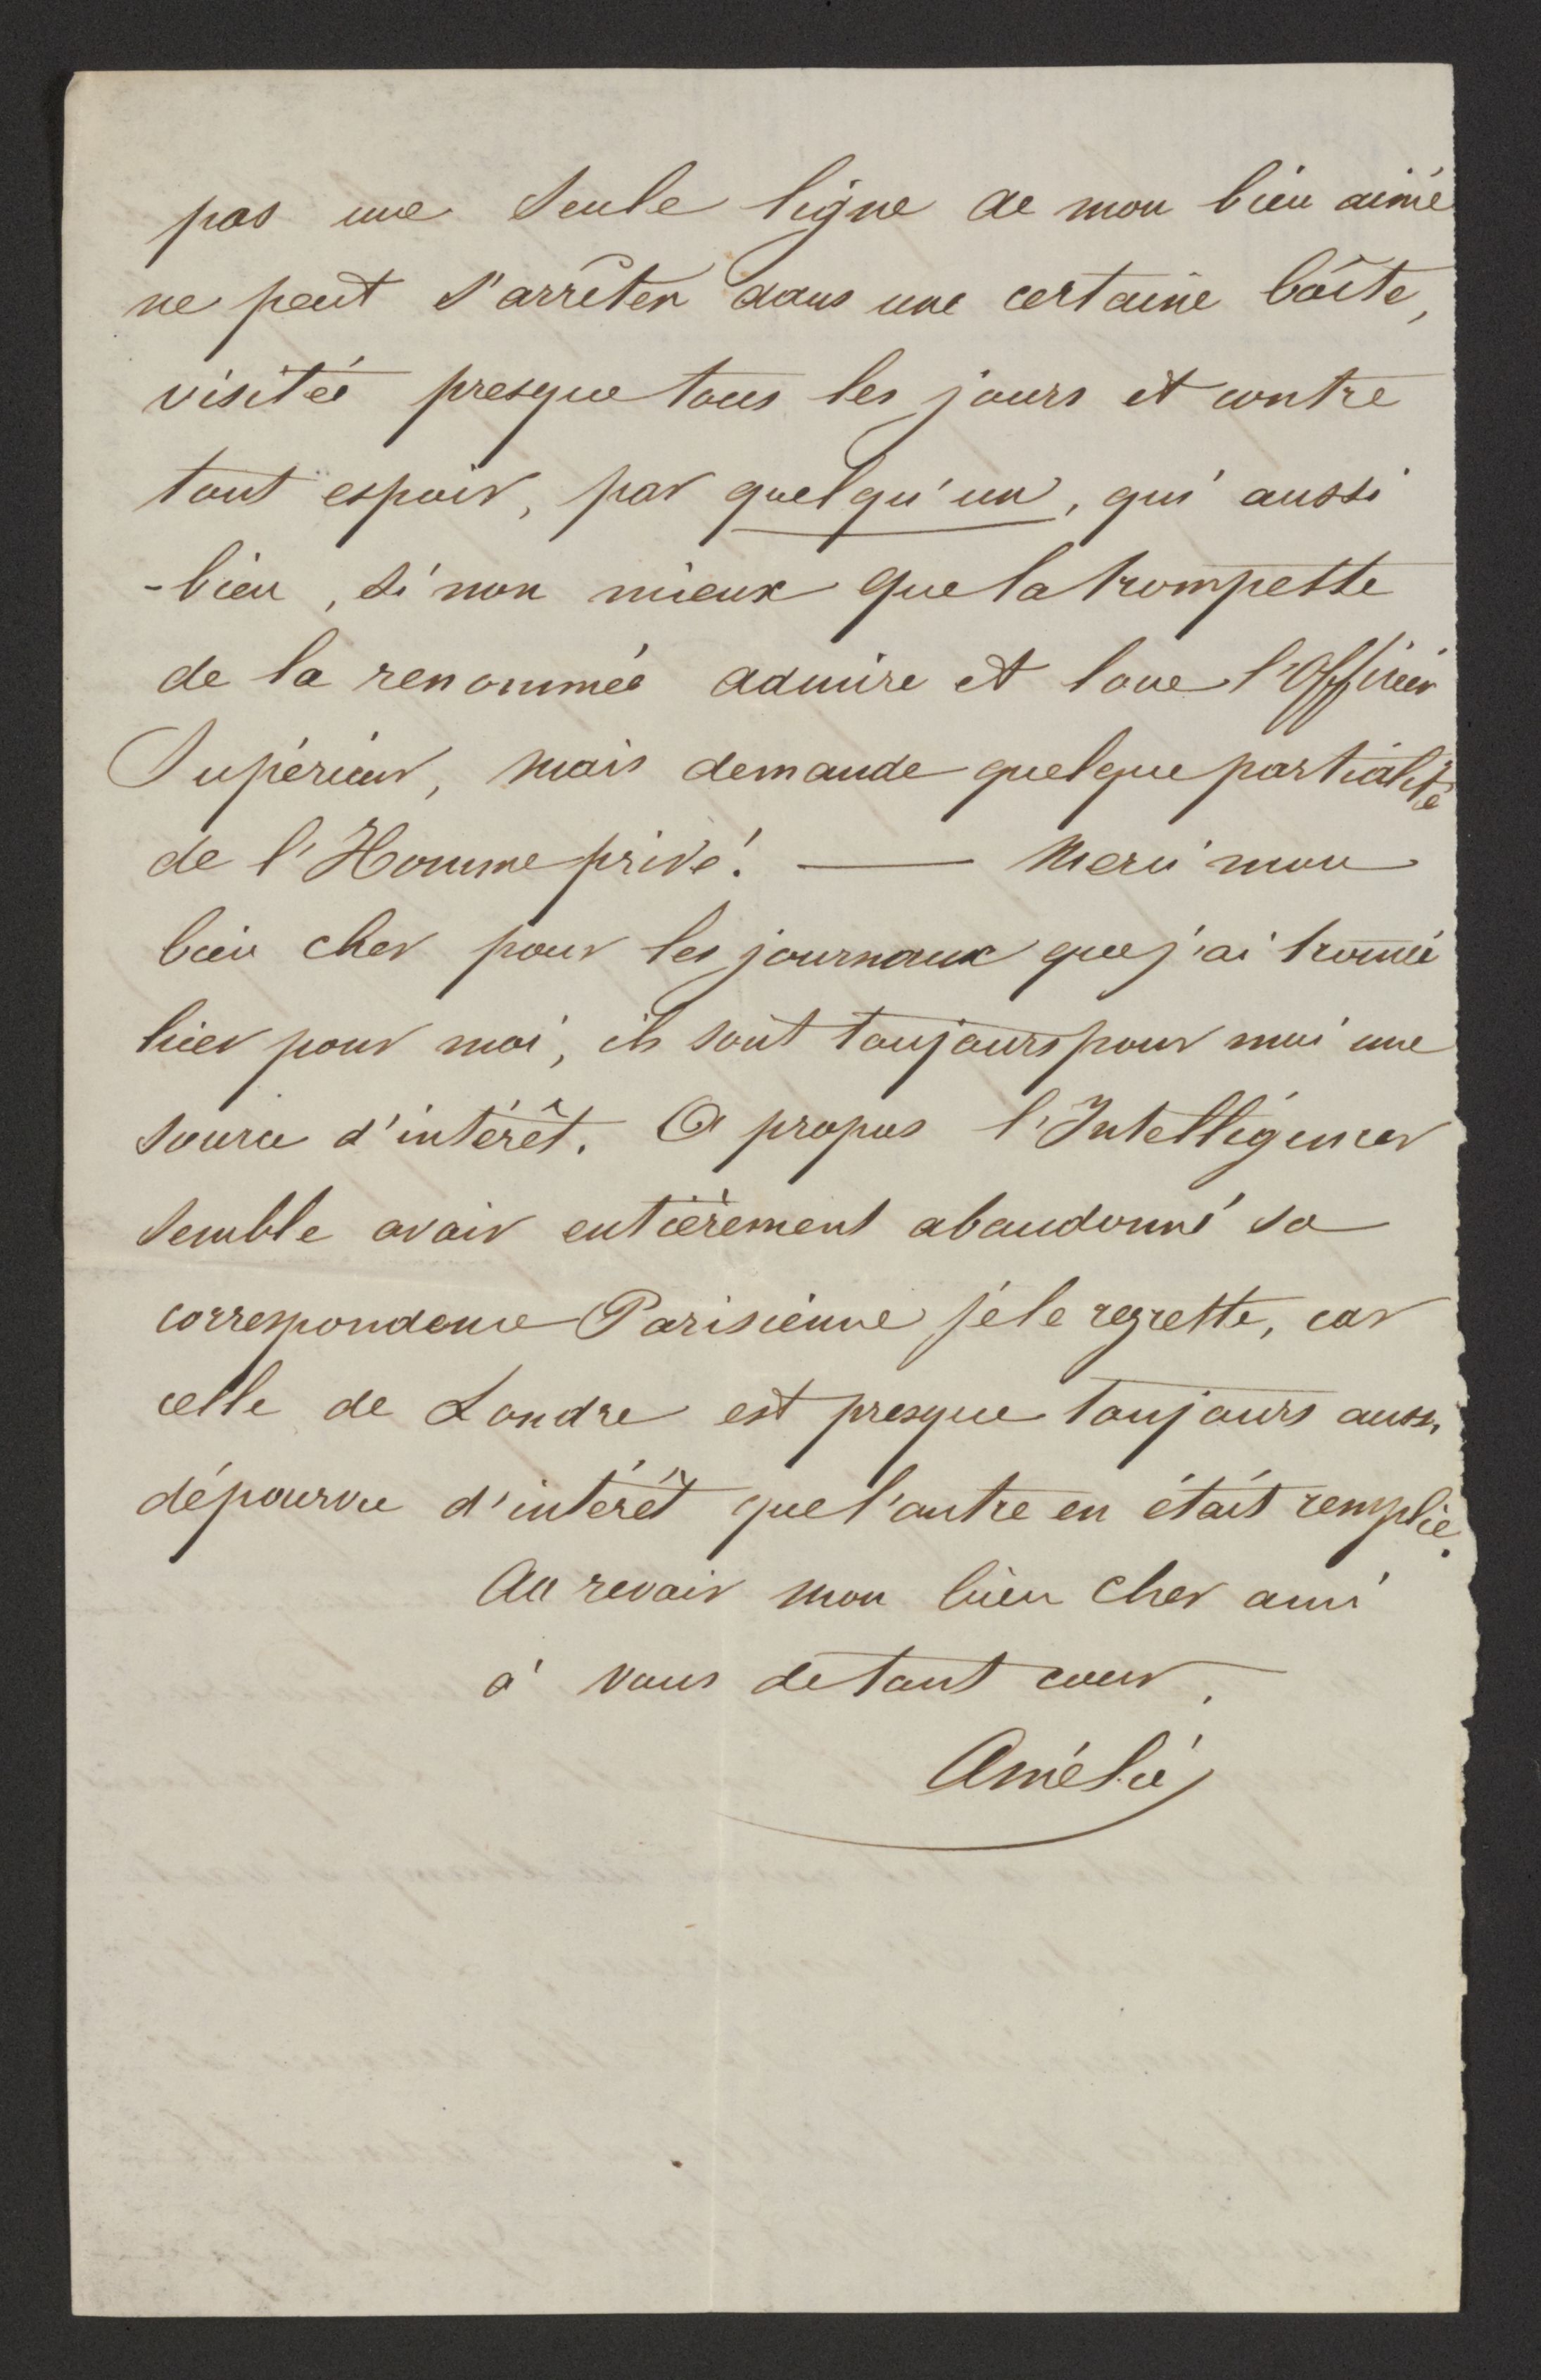 pas une seule ligne de mon bien aimé
ne peut s'arrêter dans une certaine boîte,
visitée presque tous les jours et contre
tout espoir, par quelqu'un, qui aussi
-bien, si non mieux que la trompette
de la renommée admire et loue l'Officier
Supérieur, mais demande quelque partialité
de l'Homme privé! — Merci mon
bien cher pour les journaux que j'ai trouvé
hier pour moi, ils sont toujours pour moi une
source d'intérêt. A propos l'Intelligencer
semble avoir entièrement abandonné sa
correspondence Parisienne je le regrette, car
celle de Londre est presque toujours aussi
dépourvue d'intérêt que l'autre en était remplie.
Au revoir mon bien cher ami
à vous de tout coeur.
Amélie